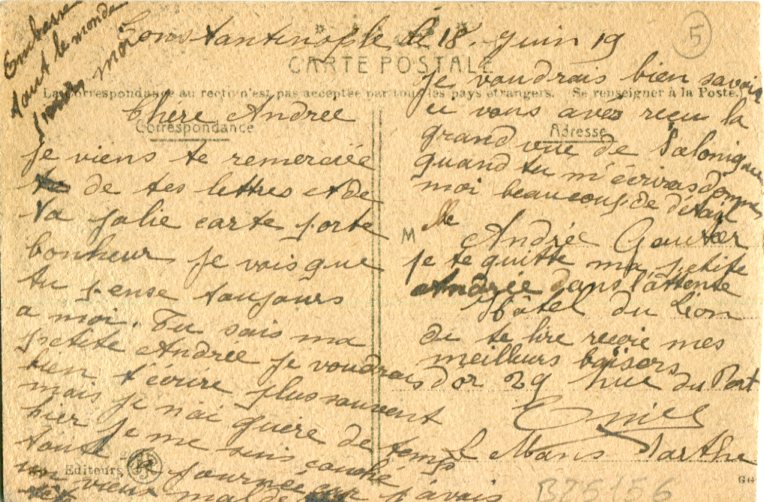 Embrasse
tout le monde
pour moi
Constantinople le 18 Juin 19
5
CARTE POSTALE
La correspondance au recto n'est pas acceptée par tous les pays étrangers. Se renseigner à la Poste.
Chère Andrée
Correspondance
je viens te remerciée
de tes lettres et de
ta jolie carte porte
bonheur je vois que
tu pense toujours
a moi. Tu sais ma
petite Andrée je voudrais
bien t'écrire plus souvent
mais je n'ai guère de temps
hier je me suis couché
toute la journée car j'avais
un vieux mal de
Editeurs
je voudrais bien savoir
si vous avez reçu la
grand vue de Salonique
Adresse
quand tu m'écriras donnes
moi beaucoup de détail
M lle
Andrée Gautier
je te quitte ma petite
Andrée dans l'attente
Hôtel du Lion
de te lire reçoie mes
meilleurs baisers
d'or 29 Rue du Port
Emile
Le Mans Sarthe
B76156